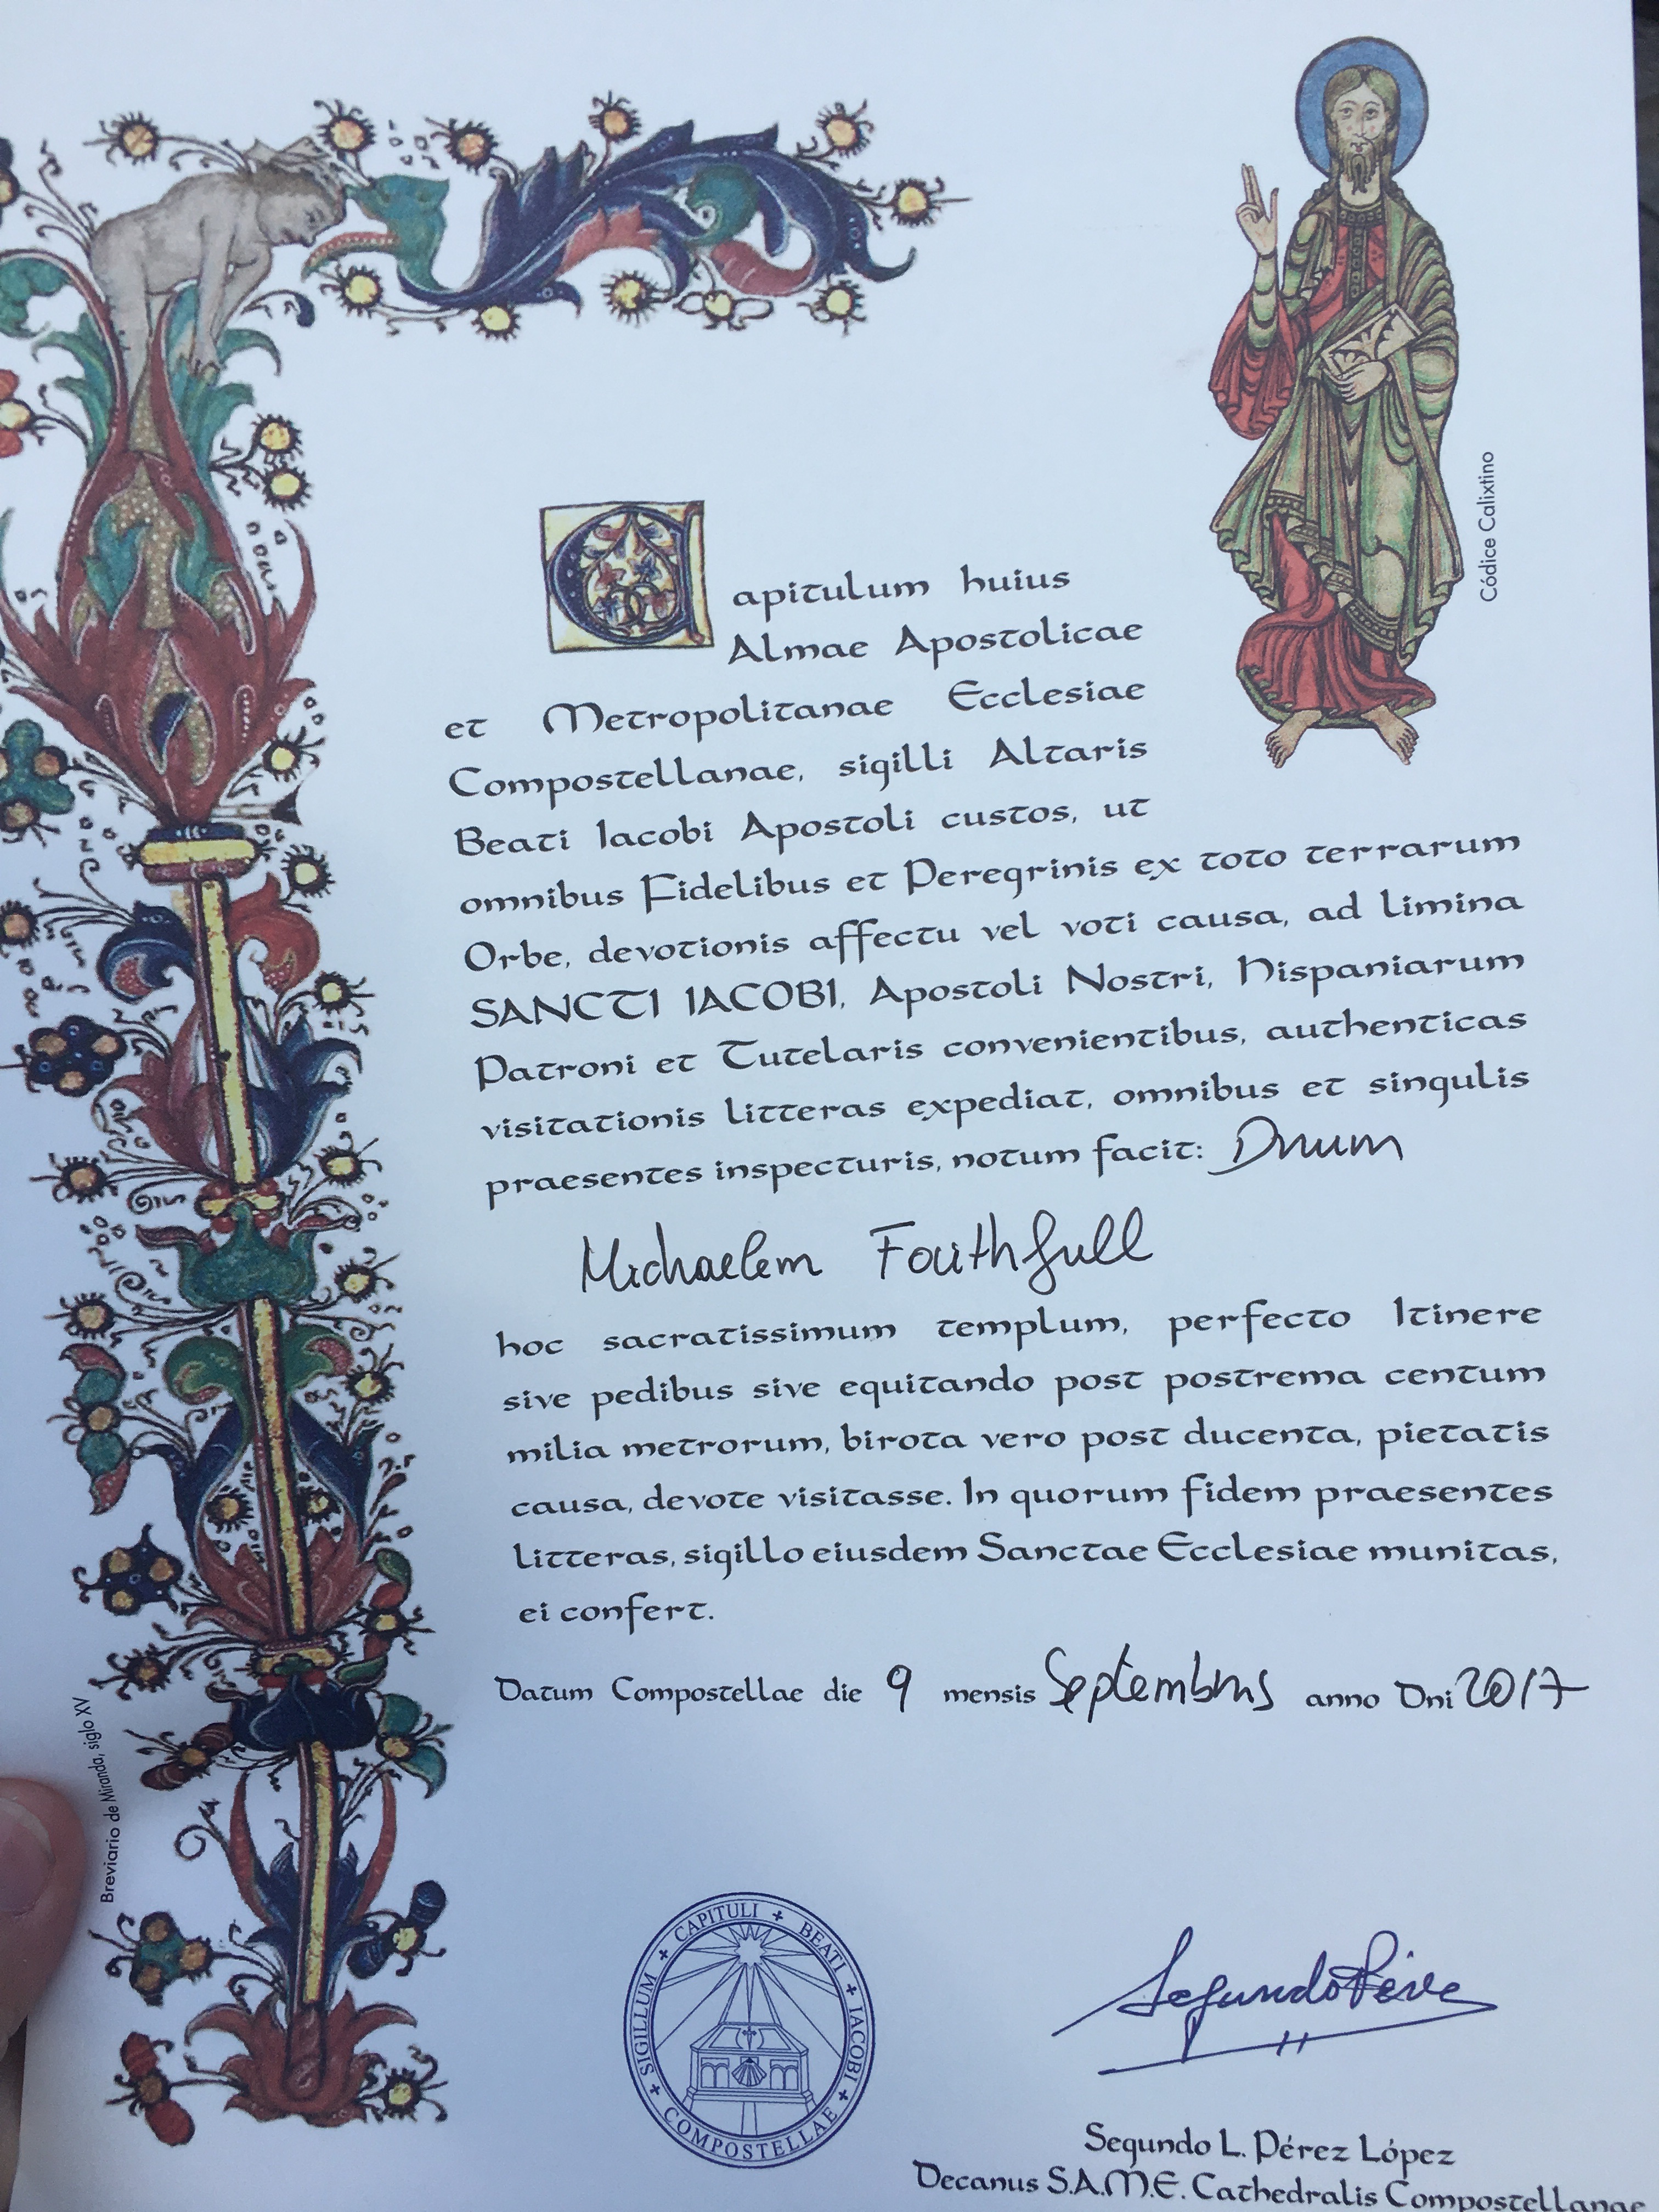 Códice Calixtino
Capitulum huius
Almae Apostolicae
et Metropolitanae Ecclesiae
Compostellanae, sigilli Altaris
Beati Iacobi Apostoli custos, ut
omnibus Fidelibus et Peregrinis ex toto terrarum
Orbe, devotionis affectu vel voti causa, ad limina
SANCTI IACOBI, Apostoli Nostri, Hispaniarum
Patroni et Tutelaris convenientibus, authenticas
visitationis litteras expediat, omnibus et singulis
praesentes inspecturis, notum facit: Dnum
Michaelem Faithfull
hoc sacratissimum templum, perfecto Itinere
sive pedibus sive equitando post postrema centum
milia metrorum, birota vero post ducenta, pietatis
causa, devote visitasse. In quorum fidem praesentes
litteras, sigillo eiusdem Sanctae Ecclesiae munitas,
ei confert.
Datum Compostellae die 9 mensis Septembris anno Dni 2017
Breviario de Miranda, siglo XV
SIGILLUM + CAPITULI + BEATI + IACOBI + COMPOSTELLAE +
Segundo Pérez
Segundo L. Pérez López
Decanus S.A.M.E. Cathedralis Compostellanae